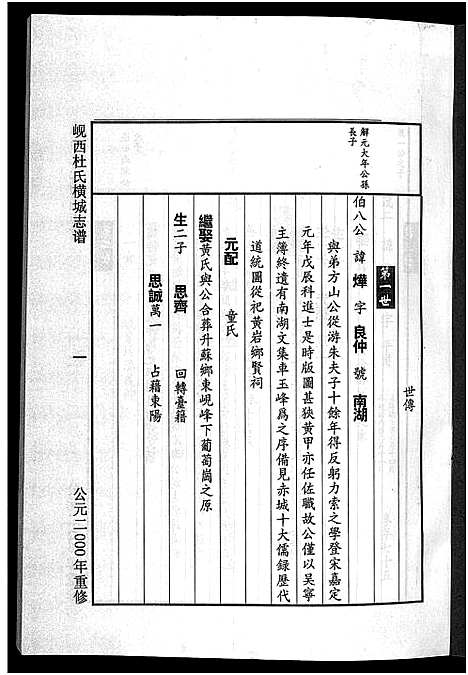 世傳
第一世
解元大年公孫
長子
伯八公 諱 燁 字 良仲 號 南湖
與弟方山公從游朱夫子十餘年得反躬力索之學登宋嘉定
元年戊辰科進士是時版圖甚狹黃甲亦任佐職故公僅以吴寧
主簿終遺有南湖文集車玉峰爲之序備見赤城十大儒錄歷代
道統圖從祀黃岩鄉賢祠
元配 童氏
繼娶黃氏與公合葬升蘇鄉東峴峰下葡萄崗之原
生二子 思齊 回轉臺籍
思誠萬一 占籍東陽
岘西杜氏横城志谱
一
公元二000年重修